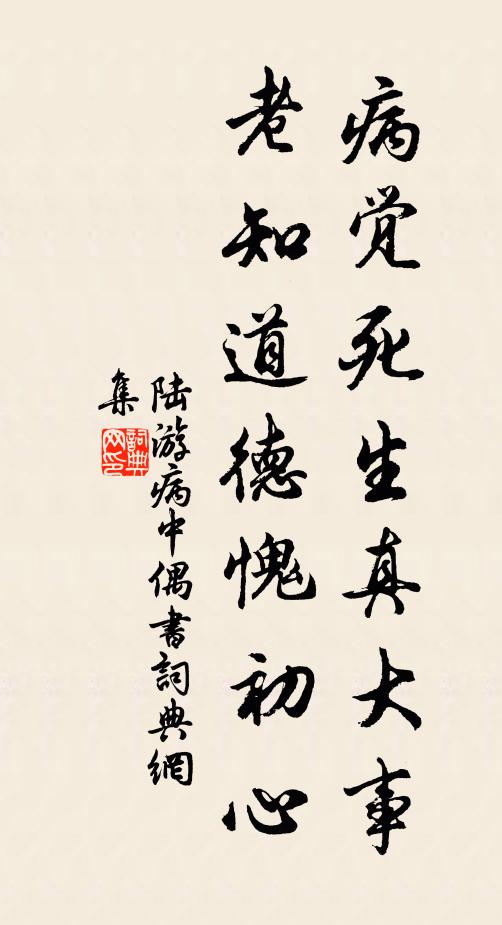 病觉死生真大事
老知道德愧初心
陆游病中偶書詞典網
集
詞典网印